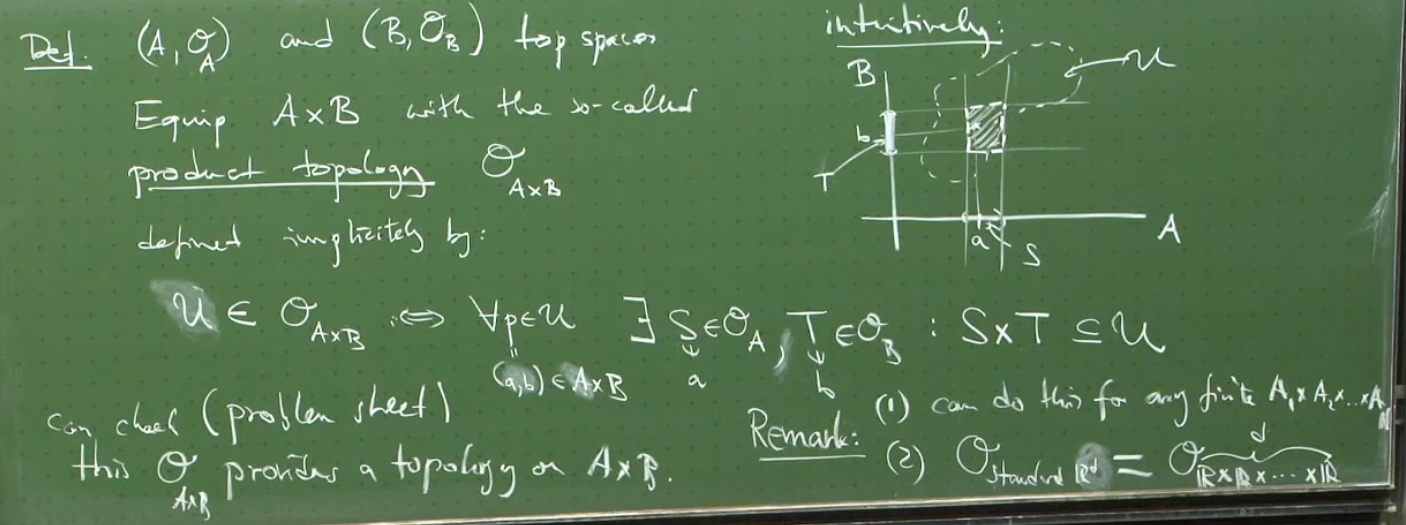 Def. (A, O_A) and (B, O_B) top spaces
Equip A×B with the so-called
product topology O_{A×B}
defined implicitely by:
intuitively:
B
U
b
T
a
S
A
U ∈ O_{A×B} :⇔ ∀p∈U ∃ S∈O_A, T∈O_B : S×T ⊆ U
(a,b) ∈ A×B a b
can check (problem sheet)
this O_{A×B} provides a topology on A×B.
Remark: (1) can do this for any finite A_1×A_2×...×A_N
(2) O_{standard ℝ^d} = O_{ℝ×ℝ×...×ℝ} d